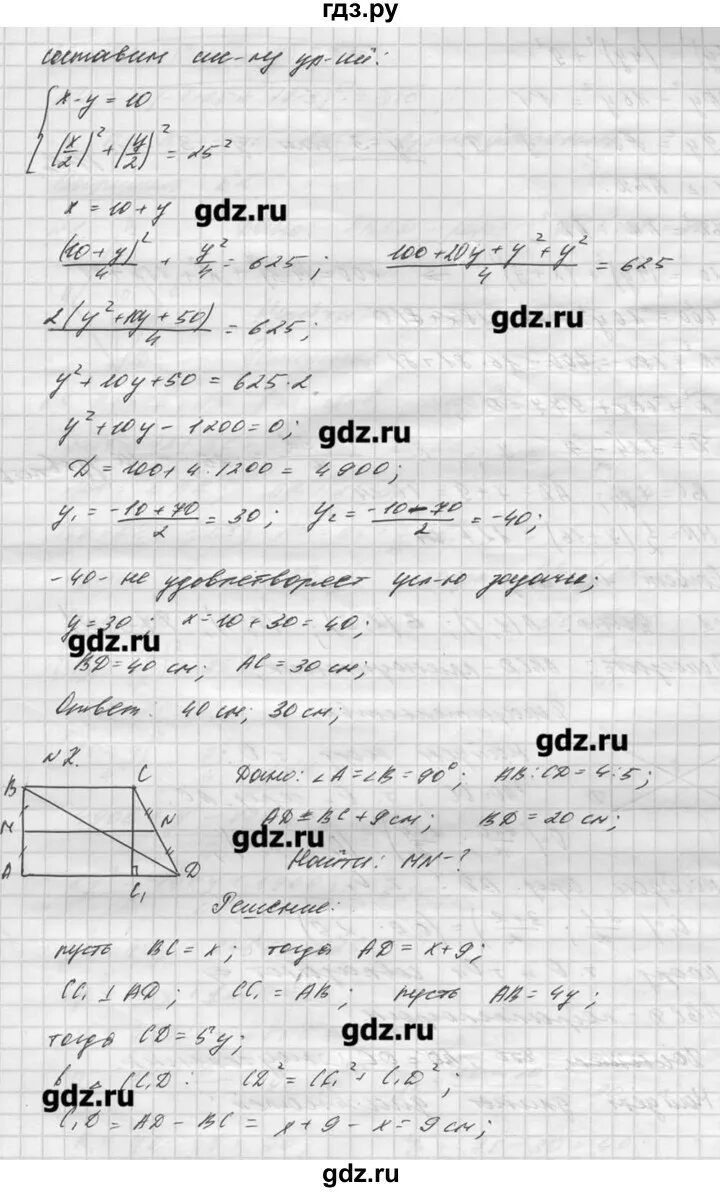 гдз.ру
составим сис-му ур-ий:
x - y = 10
(x/2)² + (y/2)² = 25²
x = 10 + y
gdz.ru
(10 + y)²/4 + y²/4 = 625; (100 + 20y + y² + y²)/4 = 625
gdz.ru
2(y² + 10y + 50)/4 = 625;
y² + 10y + 50 = 625·2
y² + 10y - 1200 = 0;
gdz.ru
D = 100 + 4·1200 = 4900;
y₁ = (-10 + 70)/2 = 30; y₂ = (-10 - 70)/2 = -40;
-40 - не удовлетворяет усл-ю задачи;
y = 30; x = 10 + 30 = 40;
gdz.ru
BD = 40 см; AC = 30 см;
Ответ: 40 см; 30 см;
gdz.ru
N 2.
B C
M N
A C₁ D
Дано: ∠A = ∠B = 90°; AB:CD = 4:5;
AD = BC + 9 см; BD = 20 см;
gdz.ru
Найти: MN - ?
Решение:
пусть BC = x; тогда AD = x + 9;
CC₁ ⊥ AD; CC₁ = AB; пусть AB = 4y;
gdz.ru
тогда CD = 5y;
в △ CC₁D: CD² = CC₁² + C₁D²;
gdz.ru
C₁D = AD - BC = x + 9 - x = 9 см;
gdz.ru